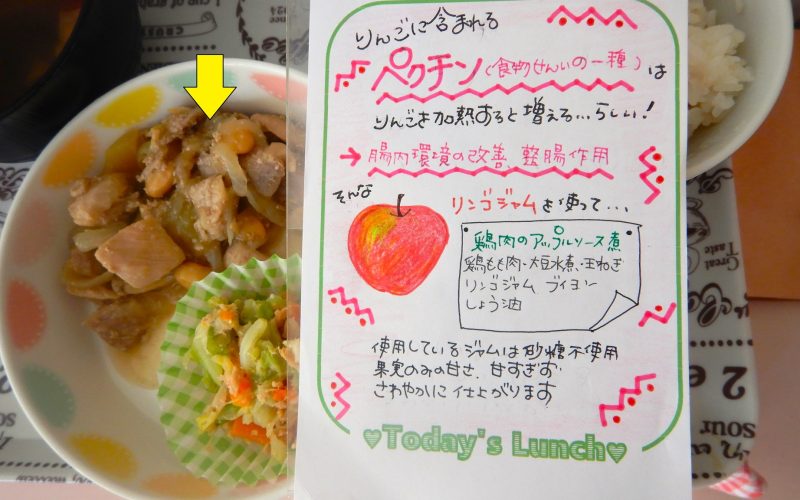 りんごに含まれる
ペクチン(食物せんいの一種)は
りんごを加熱すると増える…らしい!
→腸内環境の改善 整腸作用
そんな
リンゴジャムを使って…
鶏肉のアップルソース煮
鶏もも肉・大豆水煮・玉ねぎ
リンゴジャム ブイヨン
しょう油
使用しているジャムは砂糖不使用
果実のみの甘さ、甘すぎず
さわやかに仕上がります
♥Today's Lunch♥
Great
Taste
2 e
sour